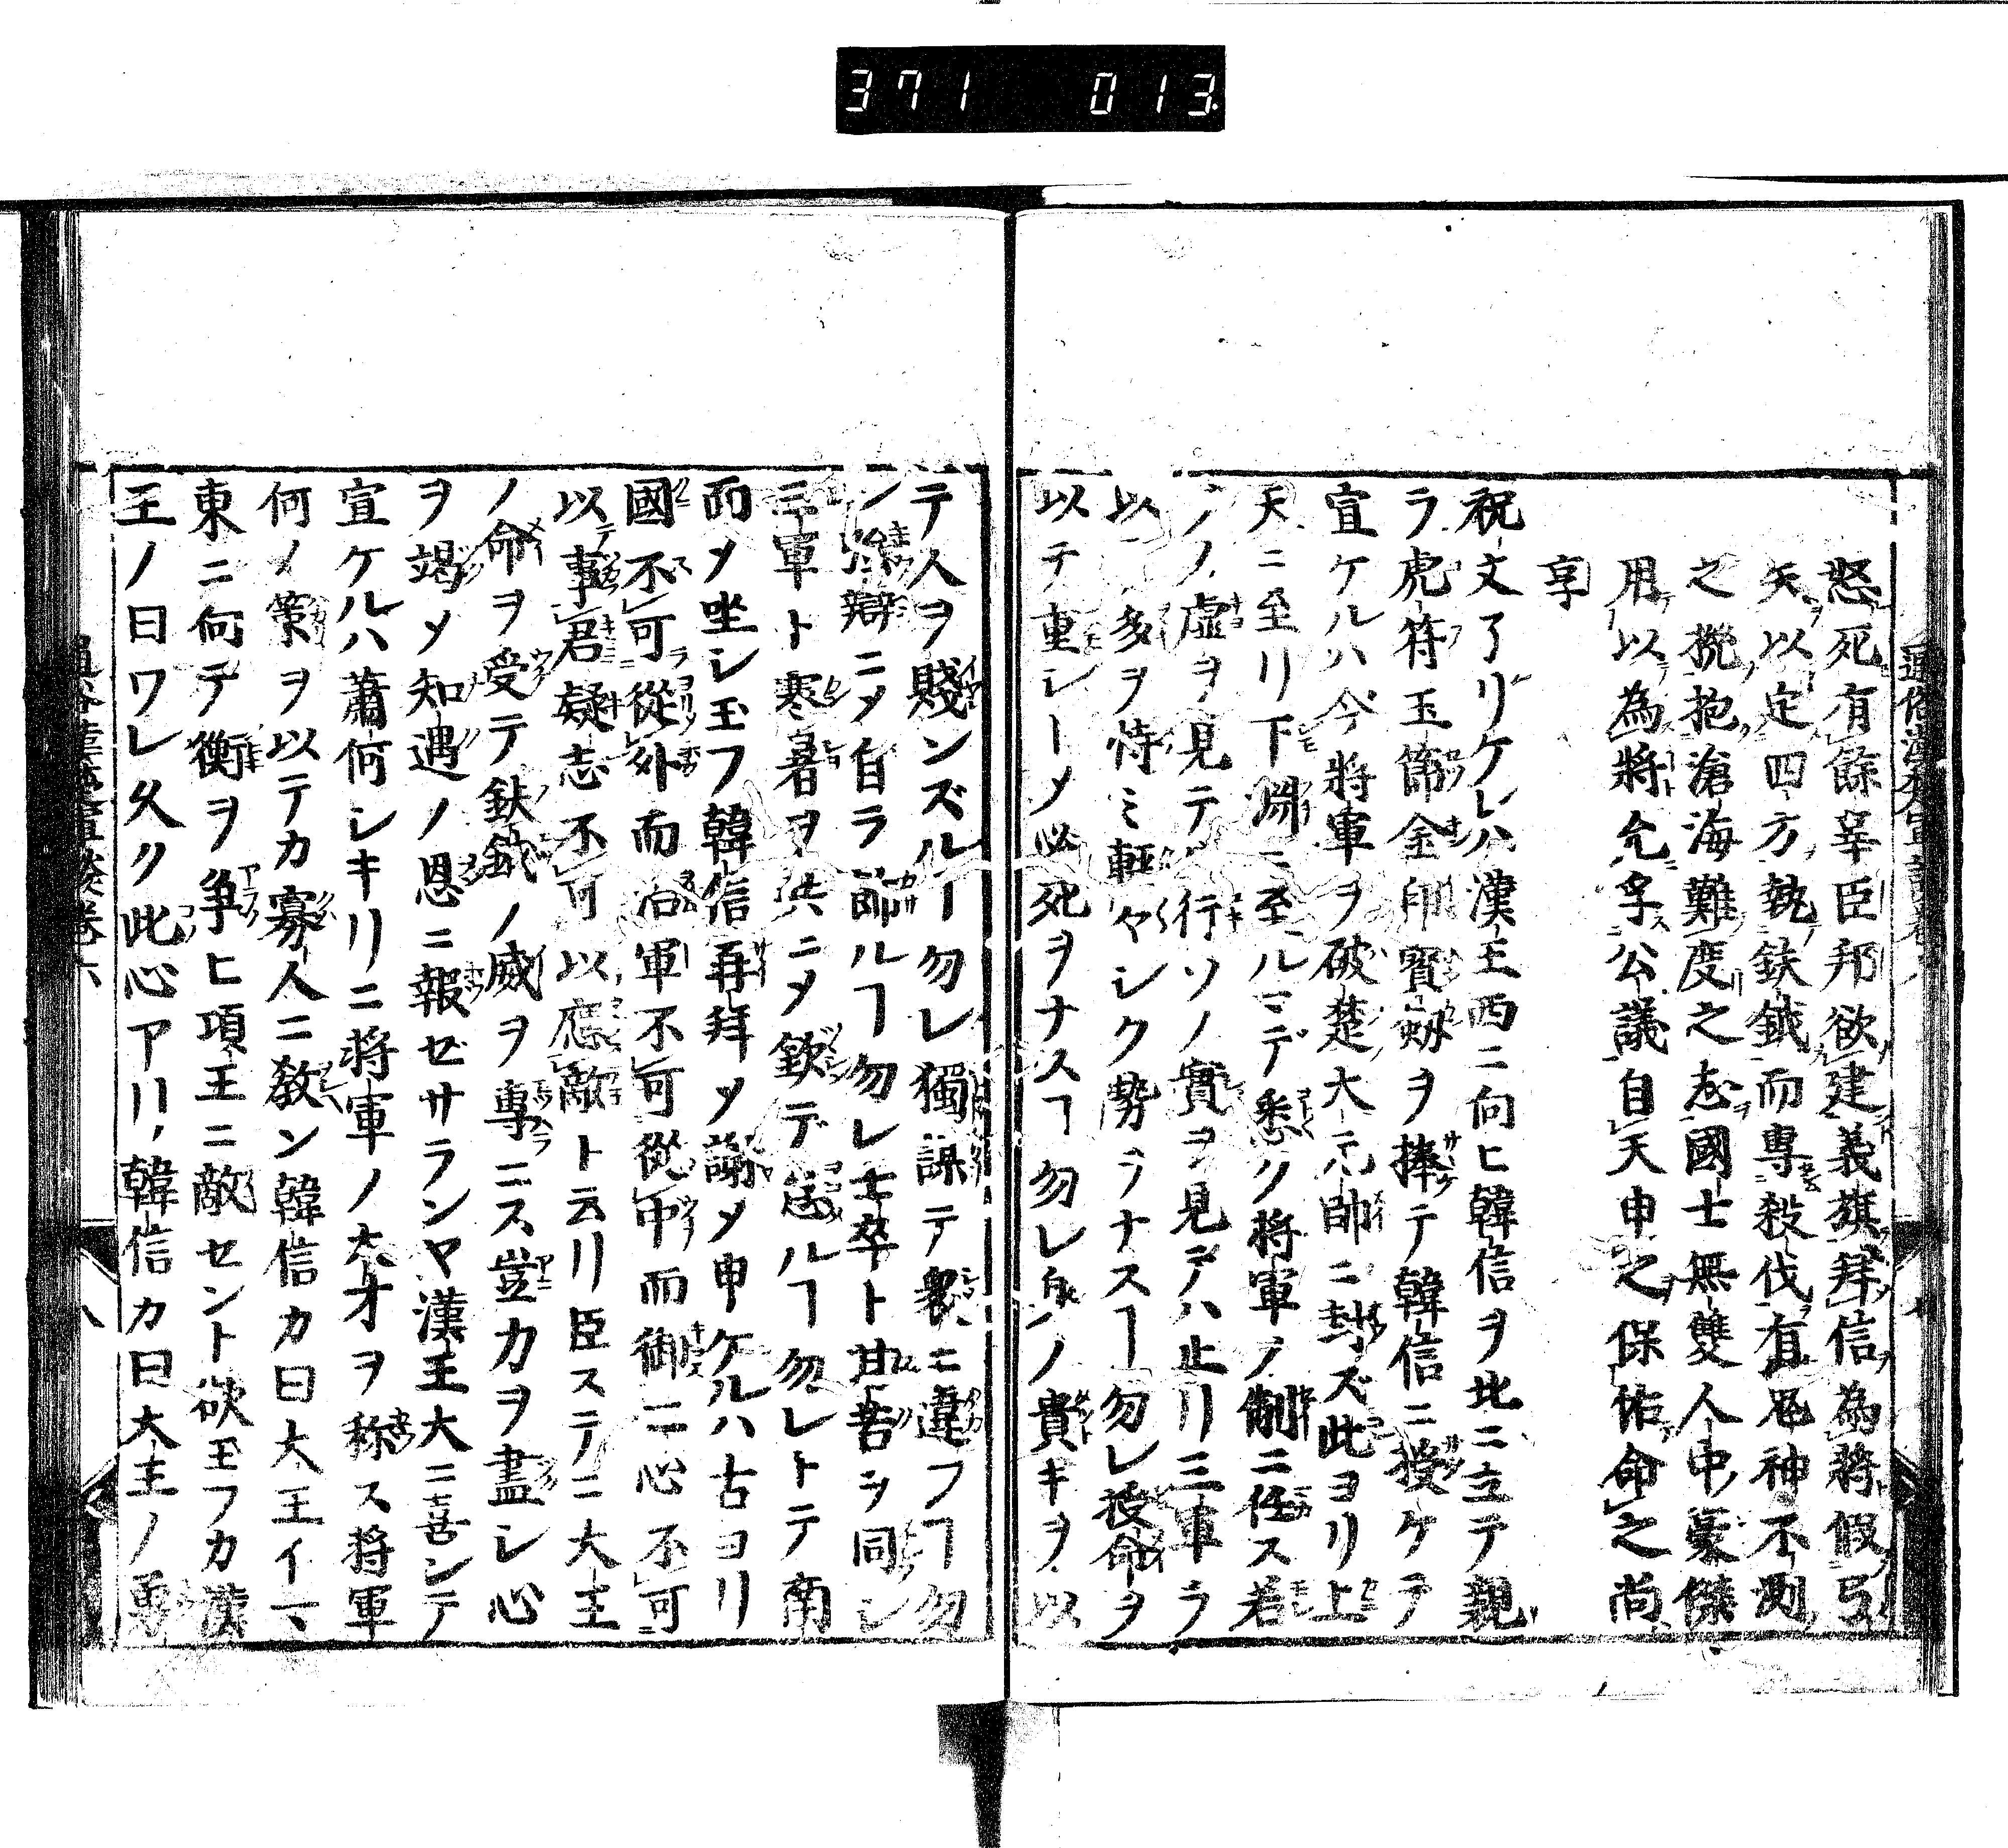 371 013
怒死有餘辜臣邦欲建義旗拜信為將假弓
矢以定四方執鈇鉞而專殺伐有鬼神不測
之機抱滄海難度之志國士無雙人中豪傑
用以為將允孚公議自天申之保佑命之尚
享
祝文了リケレハ漢王西ニ向ヒ韓信ヲ北ニ立テ親
ラ虎符玉節金印寳剱ヲ捧テ韓信ニ授ケテ
宣ケルハ今將軍ヲ破楚大元帥ニ封ズ此ヨリ上
天ニ至リ下淵ニ至ルマデ悉ク将軍ノ制ニ任ス若
ソノ虚ヲ見テハ行ソノ實ヲ見テハ止リ三軍ヲ
以テ多ヲ恃ミ輕々シク勢ヲナスヿ勿レ授命ヲ
以テ重シーメ必死ヲナスヿ勿レ身ノ貴キヲ以
テ人ヲ賤ンズルヿ勿レ獨謀テ衆ニ違フヿ勿
レ 辯ニメ自ラ飾ルヿ勿レ士卒ト甘苦ヲ同シ
三軍ト寒暑ヲ共ニメ欽デ怠ルヿ勿レトテ南
面メ坐シ玉フ韓信再拜メ謝メ申ケルハ古ヨリ
國不可從外而治軍不可從中而御二心不可
以事君疑志不可以應敵ト云リ臣ステニ大王
ノ命ヲ受テ鈇鉞ノ威ヲ專ニス豈力ヲ盡シ心
ヲ竭メ知遇ノ恩ニ報ゼサランヤ漢王大ニ喜ンテ
宣ケルハ蕭何シキリニ将軍ノ大才ヲ称ス将軍
何ノ策ヲ以テカ寡人ニ教ン韓信カ曰大王イマ
東ニ向テ衡ヲ争ヒ項王ニ敵セント欲玉フカ漢
王ノ曰ワレ久ク此心アリ韓信カ曰大王ノ勇
八